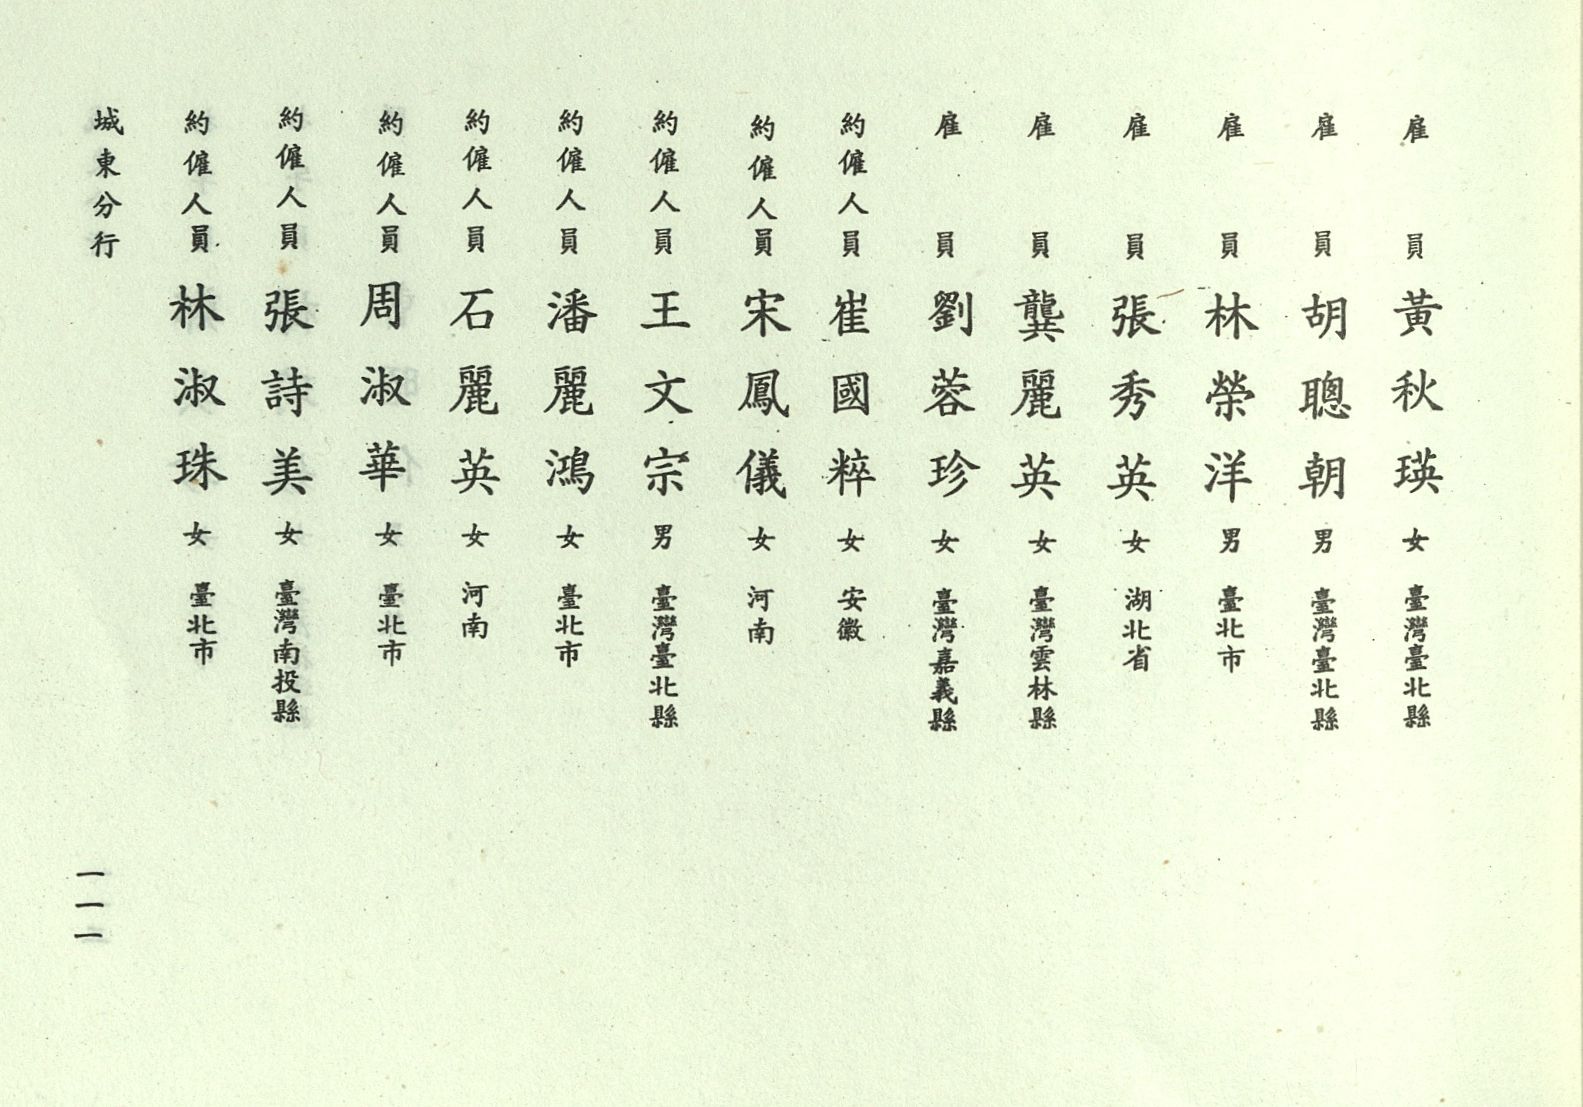 雇員 黃秋瑛 女 臺灣臺北縣
雇員 胡聰朝 男 臺灣臺北縣
雇員 林榮洋 男 臺北市
雇員 張秀英 女 湖北省
雇員 龔麗英 女 臺灣雲林縣
雇員 劉蓉珍 女 臺灣嘉義縣
約僱人員 崔國粹 女 安徽
約僱人員 宋鳳儀 女 河南
約僱人員 王文宗 男 臺灣臺北縣
約僱人員 潘麗鴻 女 臺北市
約僱人員 石麗英 女 河南
約僱人員 周淑華 女 臺北市
約僱人員 張詩美 女 臺灣南投縣
約僱人員 林淑珠 女 臺北市
城東分行
一一一